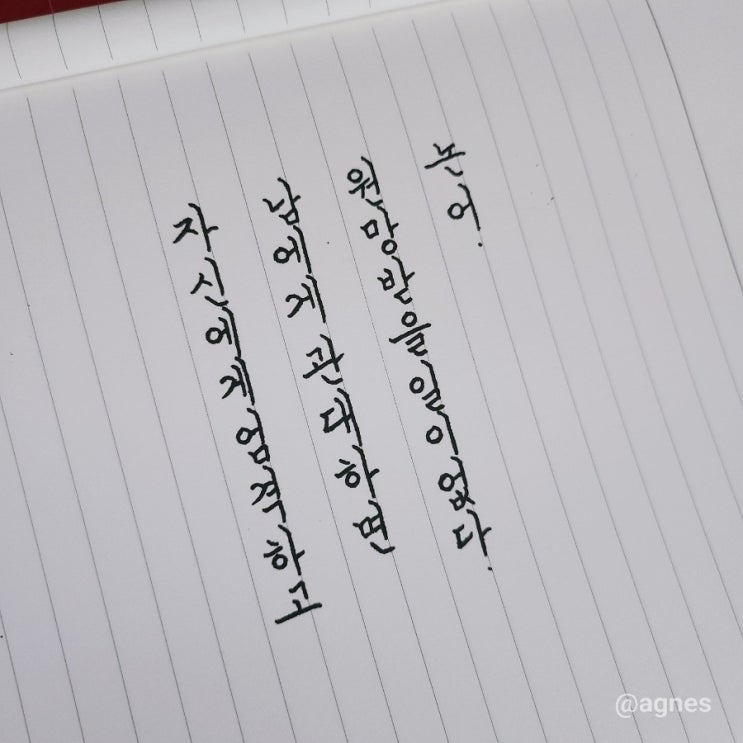 자신에게 엄격하고
남에게 관대하면
원망받을 일이 없다.
논어.
@agnes